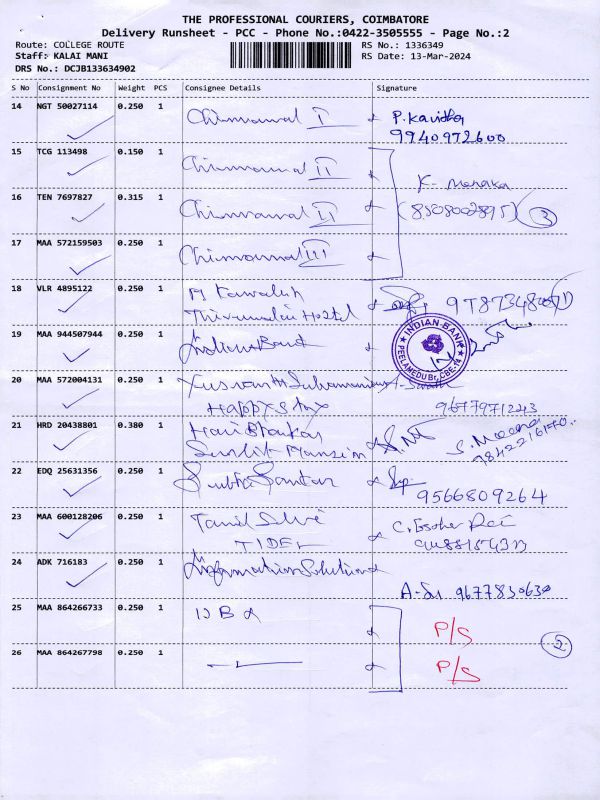 THE PROFESSIONAL COURIERS, COIMBATORE
Delivery Runsheet - PCC - Phone No.:0422-3505555 - Page No.:2
Route: COLLEGE ROUTE RS No.: 1336349
Staff: KALAI MANI RS Date: 13-Mar-2024
DRS No.: DCJB133634902
S No Consignment No Weight PCS Consignee Details Signature
14 NGT 50027114 0.250 1 I P. Kavitha
9940972600
15 TCG 113498 0.150 1 II
K. Menaka
16 TEN 7697827 0.315 1 II (8508002895) 3
17 MAA 572159503 0.250 1 III
18 VLR 4895122 0.250 1
Thirumalai Hostel
19 MAA 944507944 0.250 1 Indian Bank INDIAN BANK PEELAMEDU Br, CBE-14
20 MAA 572004131 0.250 1
Happy Stay 9677971243
21 HRD 20438801 0.380 1 Hari Bhaskar S. Meena
Sunlit Mansion 9842216140
22 EDQ 25631356 0.250 1 Subha
9566809264
23 MAA 600128206 0.250 1 Tamil Selvi
TIDEL
24 ADK 716183 0.250 1 Information Solution
9677830630
25 MAA 864266733 0.250 1 P/S
2
26 MAA 864267798 0.250 1 P/S